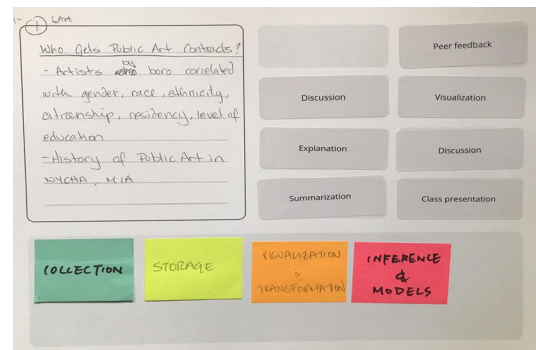 1 Art
Who Gets Public Art Contracts?
- Artists by boro corelated
with gender, race, ethnicity,
citizenship, residency, level of
education
- History of Public Art in
NYCHA, MTA
Peer feedback
Discussion
Visualization
Explanation
Discussion
Summarization
Class presentation
COLLECTION
STORAGE
VISUALIZATION
&
TRANSFORMATION
INFERENCE
&
MODELS